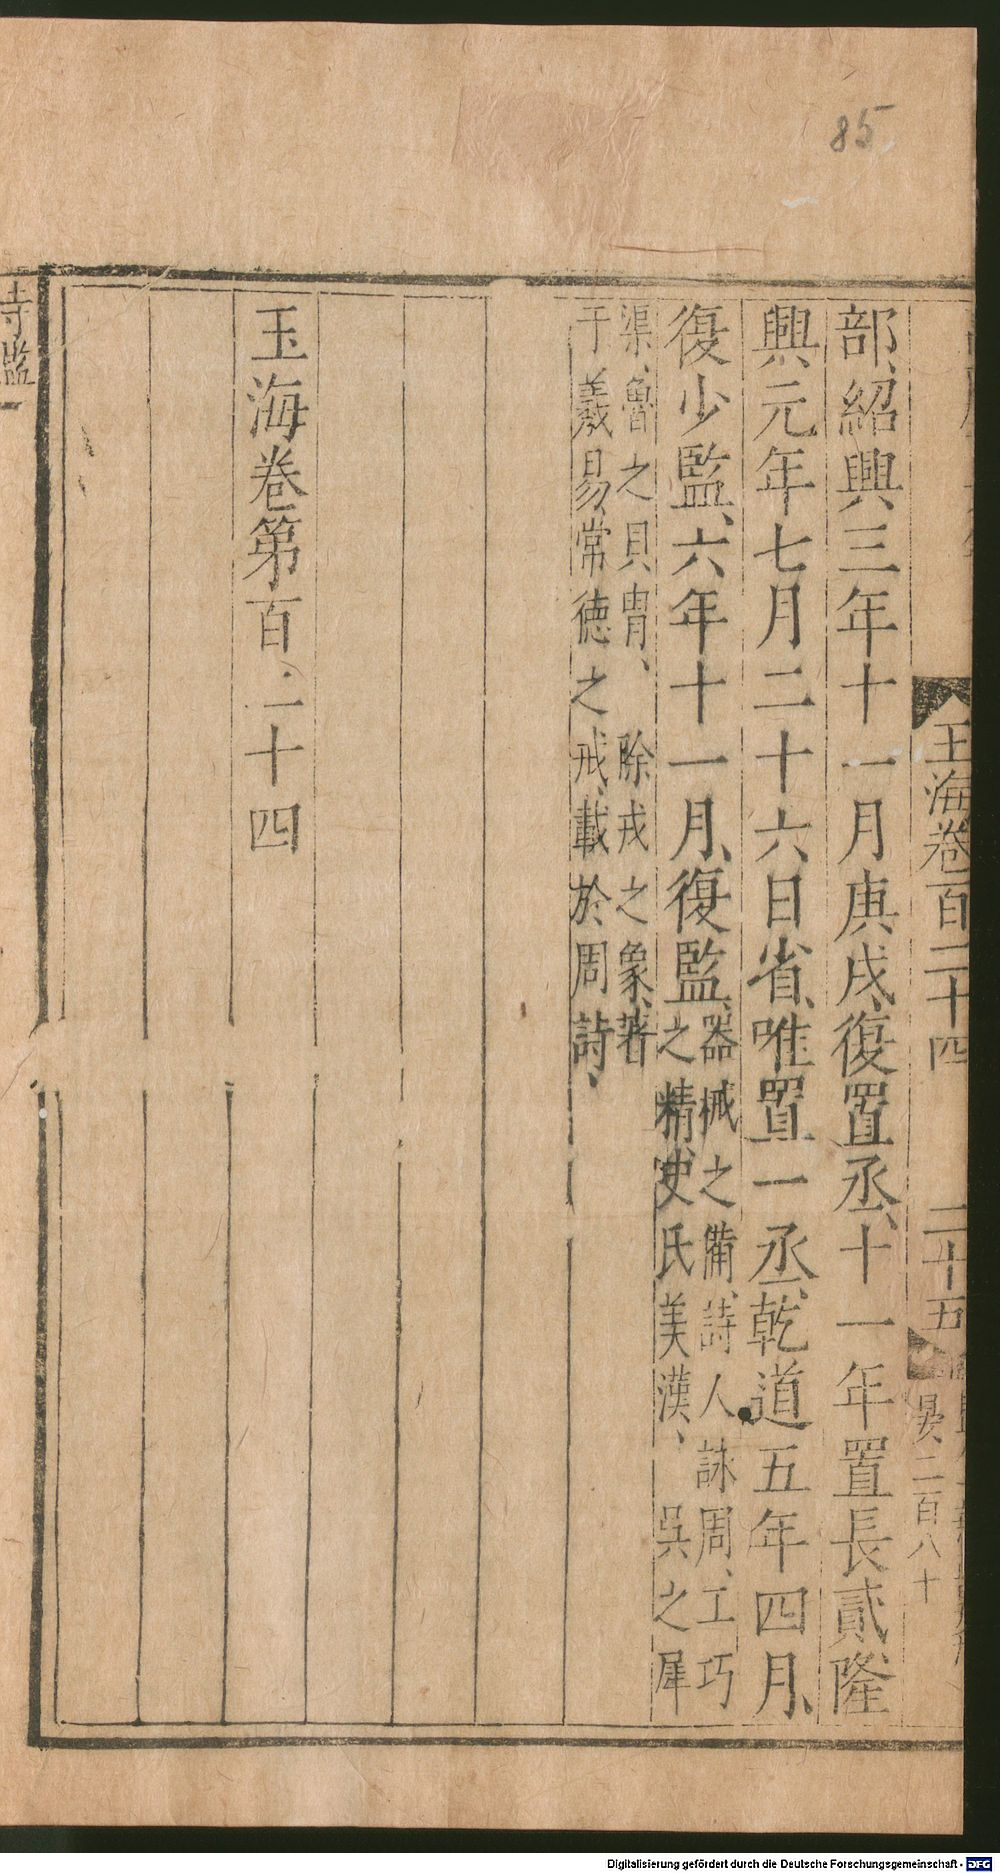 85
玉海卷百二十四 二十五
晏、二百八十
部、紹興三年十一月庚戌、復置丞、十一年置長貳、隆
興元年七月二十六日省、唯置一丞、乾道五年四月、
復少監、六年十一月、復監、
器械之備、詩人詠周、工巧
之精、史氏美漢、 吳之犀
渠、魯之貝胄、 除戎之象、著
于羲易、常德之戒、載於周詩、
玉海卷第百二十四
寺監
Digitalisierung gefördert durch die Deutsche Forschungsgemeinschaft - DFG